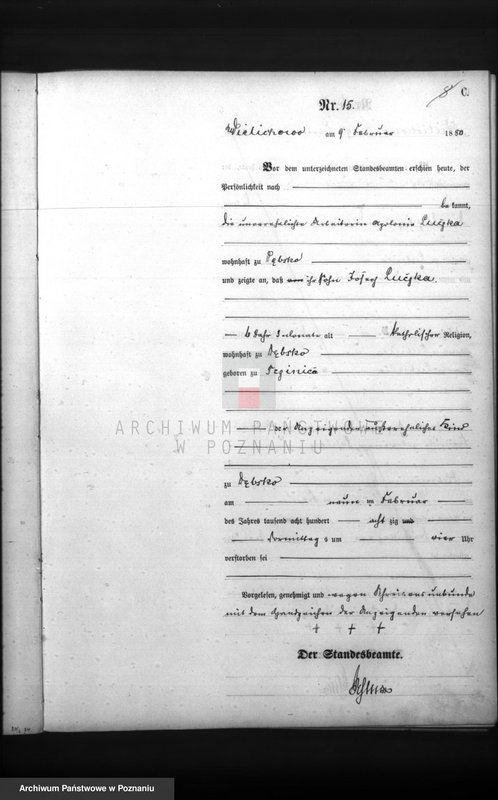 8
C.
Nr. 15.
Wielichowo am 9 Februar 1880
Vor dem unterzeichneten Standesbeamten erschien heute, der
Persönlichkeit nach
be kannt,
die unverehelichte Arbeiterin Apolonia
wohnhaft zu Dębsko
und zeigte an, daß ihr Sohn Josef
6 Jahr 3 Monate alt katholischer Religion,
wohnhaft zu Dębsko
geboren zu
der Anzeigenden außereheliches Kind
zu Dębsko
am neun ten Februar
des Jahres tausend acht hundert acht zig und
Vormittag s um vier Uhr
verstorben sei
Vorgelesen, genehmigt und wegen Schreibensunkunde
mit dem Handzeichen der Anzeigenden versehen
+ + +
Der Standesbeamte.
ARCHIWUM PAŃSTWOWE
W POZNANIU
Archiwum Państwowe w Poznaniu